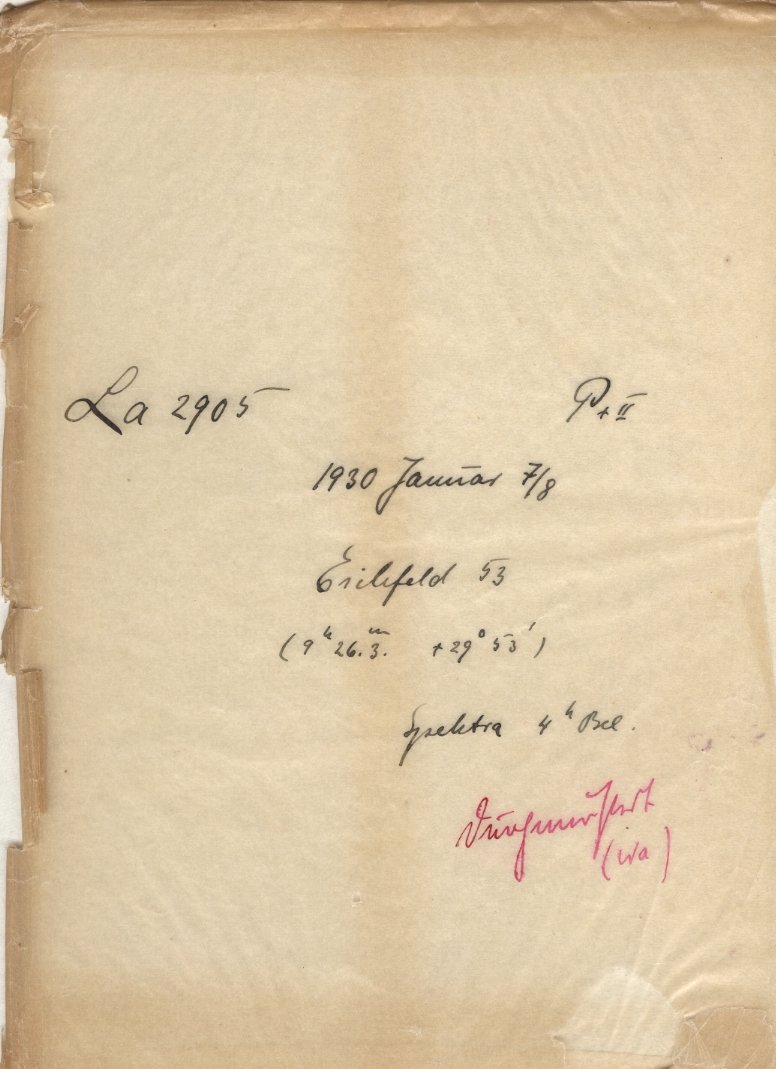 La 2905 P + II
1930 Januar 7/8
Eichfeld 53
(9ʰ 26.ᵐ3. +29° 53')
Spektra 4ʰ Bel.
Durchmustert
(wa)